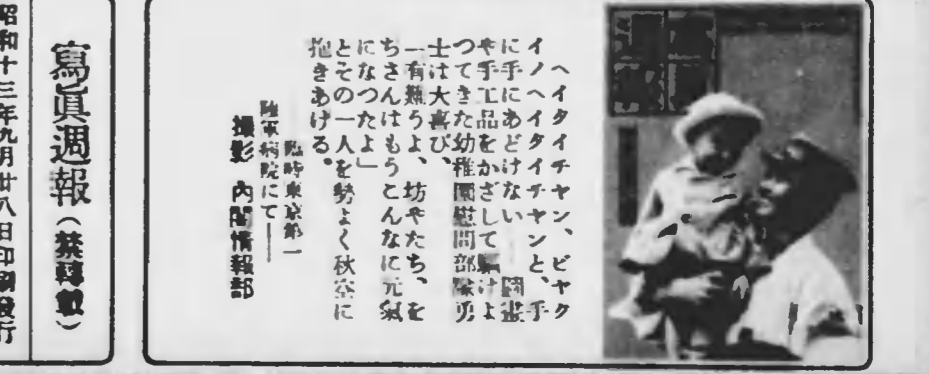 ヘイタイチヤン、ビヤク
イノヘイタイチヤンと、手
に手にあどけない 圖畫
や手工品をかざして驅けよ
つてきた幼稚園慰問部隊勇
士は大喜び、
「有難うよ、坊やたち、を
ちさんはもうこんなに元氣
になつたよ」
とその一人を勢よく秋空に
抱きあげる。
臨時東京第一
陸軍病院にて――
撮影 內閣情報部
寫眞週報(禁轉載)
昭和十三年九月廿八日印刷發行